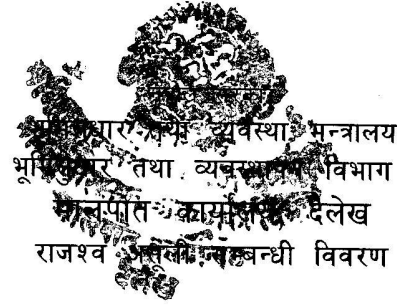 भूमिसुधार तथा व्यवस्था मन्त्रालय
भूमिसुधार तथा व्यवस्थापन विभाग
मालपोत कार्यालय दैलेख
राजश्व असूली सम्बन्धी विवरण